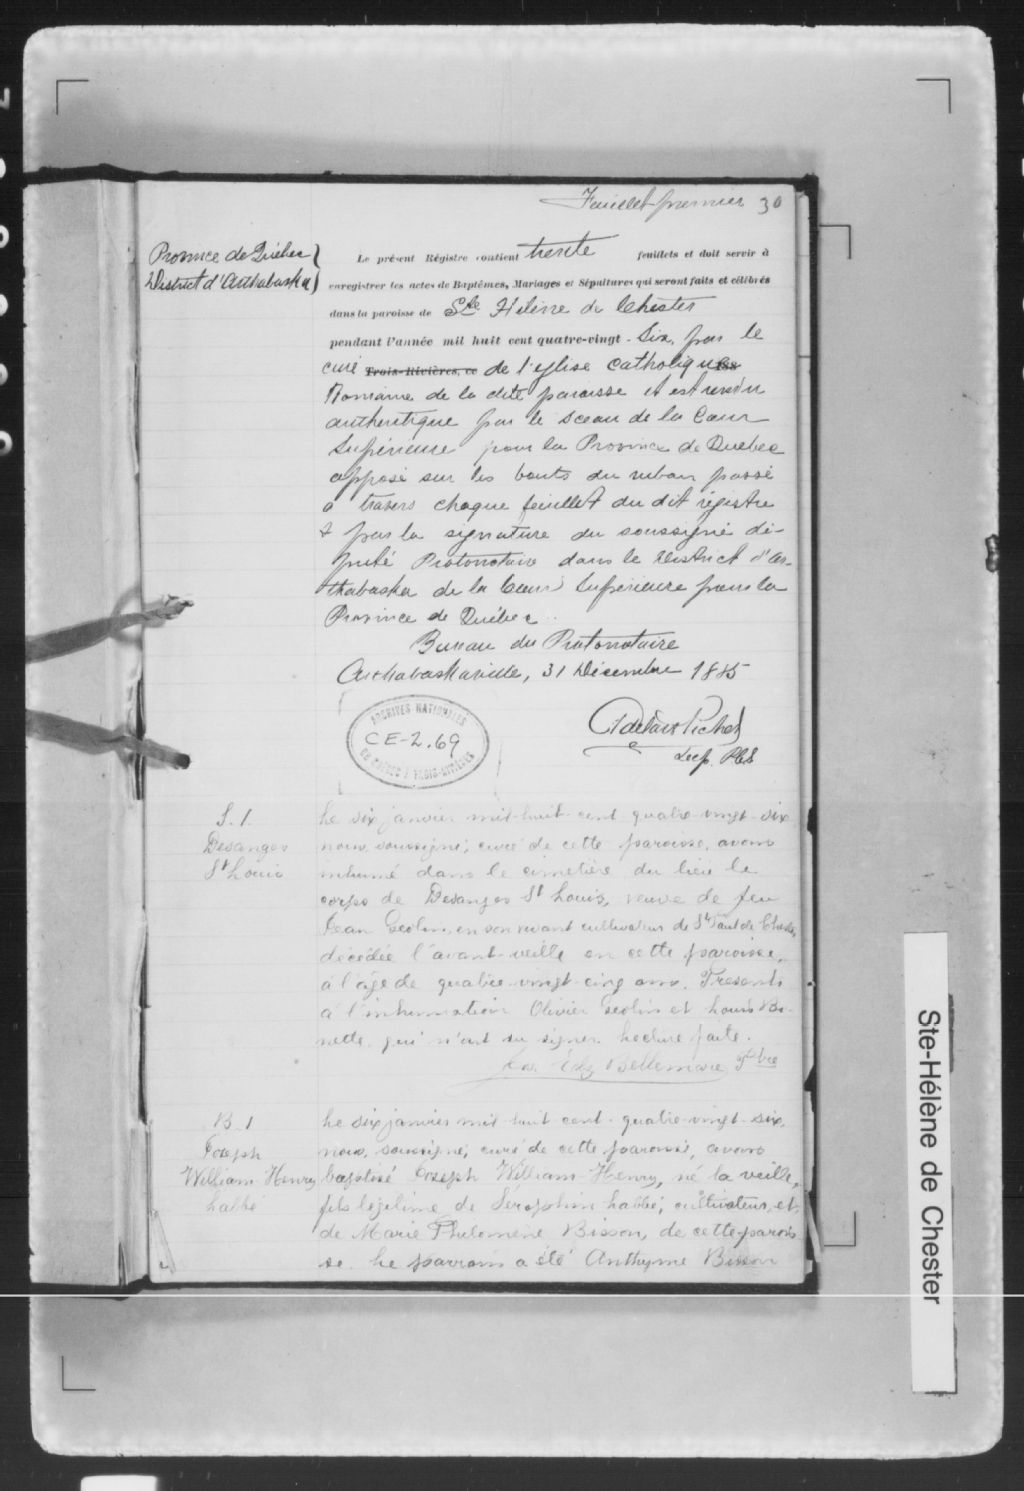 Feuillet premier 30
Province de Québec
District d'Arthabaska
Le présent Régistre contient trente feuillets et doit servir à
enregistrer les actes de Baptêmes, Mariages et Sépultures qui seront faits et célébrés
dans la paroisse de Ste Hélène de Chester
pendant l'année mil huit cent quatre-vingt-six, par le
curé Trois-Rivières, ce de l'église catholique
Romaine de la dite paroisse et est rendu
authentique par le sceau de la Cour
Supérieure pour la Province de Québec
apposé sur les bouts du ruban passé
à travers chaque feuillet du dit régistre
& par la signature du soussigné dé-
puté Protonotaire dans le District d'Ar-
thabaska de la Cour Supérieure pour la
Province de Québec.
Bureau du Protonotaire
Arthabaskaville, 31 Décembre 1885
Adélard Pichet
Dep. P.C.S.
ARCHIVES NATIONALES
CE-2.69
DU QUÉBEC À TROIS-RIVIÈRES
S. 1.
Desanges
St Louis
Le six janvier mil-huit-cent quatre-vingt-six
nous, soussigné, curé de cette paroisse, avons
inhumé dans le cimetière du lieu le
corps de Desanges St Louis, veuve de feu
Jean en son vivant cultivateur de St Paul de Chester,
décédée l'avant-veille en cette paroisse,
à l'âge de quatre-vingt-cinq ans. Présents
à l'inhumation Olivier et Louis Bi-
nette qui n'ont su signer. Lecture faite.
Bellemare Ptre
B. 1
Joseph
William-Henry
Labbé
Le six janvier mil-huit-cent-quatre-vingt-six,
nous, soussigné, curé de cette paroisse, avons
baptisé Joseph William-Henry, né la veille,
fils légitime de Séraphin Labbé, cultivateur, et
de Marie Philomène Bisson, de cette parois-
se. Le parrain a été Anthyme Bisson
Ste-Hélène de Chester